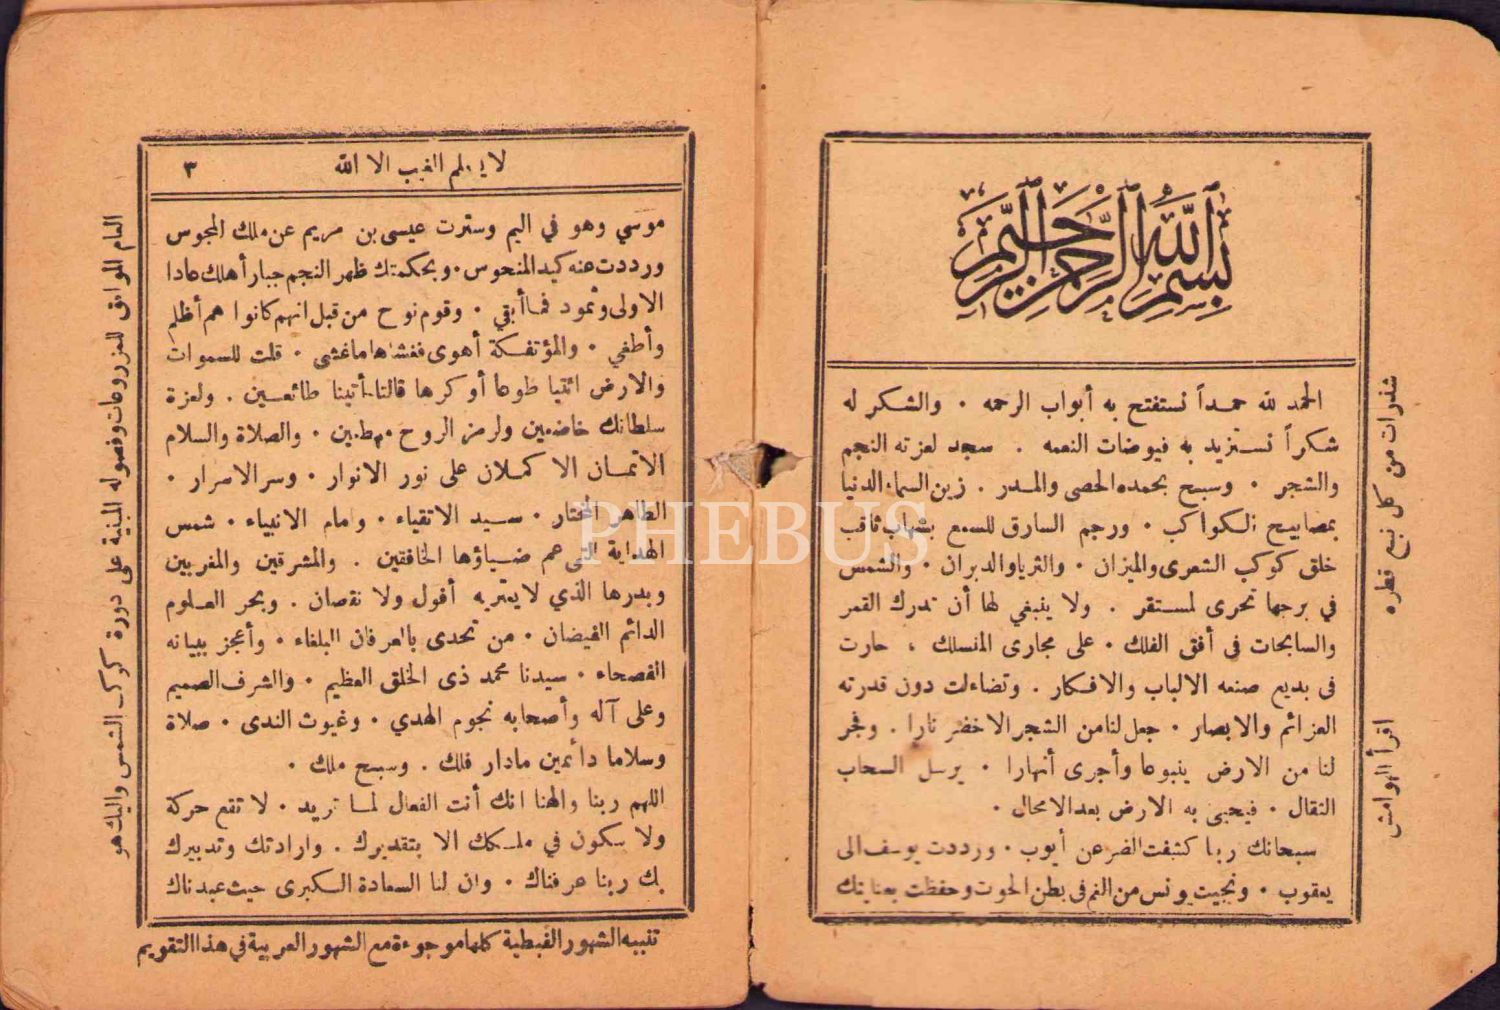 بسم الله الرحمن الرحيم
الحمد لله حمداً نستفتح به أبواب الرحمه · والشكر له
شكراً نستزيد به فيوضات النعمه . سجد لعزته النجم
والشجر · وسبح بحمده الحصى والمدر . زين السماء الدنيا
بمصابيح الكواكب · ورجم السارق للسمع بشهاب ثاقب
خلق كوكب الشعرى والميزان · والثريا والدبران · والشمس
في برجها تجرى لمستقر . ولا ينبغي لها أن تدرك القمر
والسابحات فى أفق الفلك · على مجارى المنسلك ، حارت
فى بديع صنعه الالباب والافكار . وتضاءلت دون قدرته
العزائم والابصار · جعل لنا من الشجر الاخضر نارا . وفجر
لنا من الارض ينبوعا وأجرى أنهارا · يرسل السحاب
الثقال · فيحيى به الارض بعد الامحال ·
سبحانك ربنا كشفت الضر عن أيوب · ورددت يوسف الى
يعقوب · ونجيت يونس من الغم فى بطن الحوت وحفظت بعنايتك
شذرات من كل نبع قطره
اقرأ الهوامش
لا يعلم الغيب الا الله
٣
موسي وهو في اليم وسترت عيسى بن مريم عن ملك المجوس
ورددت عنه كيد المنحوس · وبحكمتك ظهر النجم جبارا أهلك عادا
الاولى وثمود فما أبقي · وقوم نوح من قبل انهم كانوا هم أظلم
وأطغي · والمؤتفكة أهوى فغشاها ما غشى · قلت للسموات
والارض ائتيا طوعا أو كرها قالتا أتينا طائعين . ولعزة
سلطانك خاضعين ولرمز الروح مطيعين · والصلاة والسلام
الاتمان الا كملان على نور الانوار · وسر الاسرار ·
الطاهر المختار · سيد الاتقياء · وامام الانبياء · شمس
الهداية التى عم ضياؤها الخافقين . والمشرقين والمغربين
وبدرها الذي لا يعتريه أفول ولا نقصان . وبحر العلوم
الدائم الفيضان · من تحدى بالعرفان البلغاء · وأعجز ببيانه
الفصحاء · سيدنا محمد ذى الخلق العظيم · والشرف الصميم
وعلى آله وأصحابه نجوم الهدي · وغيوث الندى · صلاة
وسلاما دائمين مادار فلك . وسبح ملك ·
اللهم ربنا والهنا انك أنت الفعال لما تريد · لا تقع حركة
ولا سكون في ملكك الا بتقديرك . وارادتك وتدبيرك
بك ربنا عرفناك · وان لنا السعادة الكبرى حيث عبدناك
العام الموافق للمزروعات وفصوله المبنية على دورة كوكب الشمس واليك هو
تنبيه الشهور القبطية كلها موجوءة مع الشهور العربية في هذا التقويم
PHEBUS